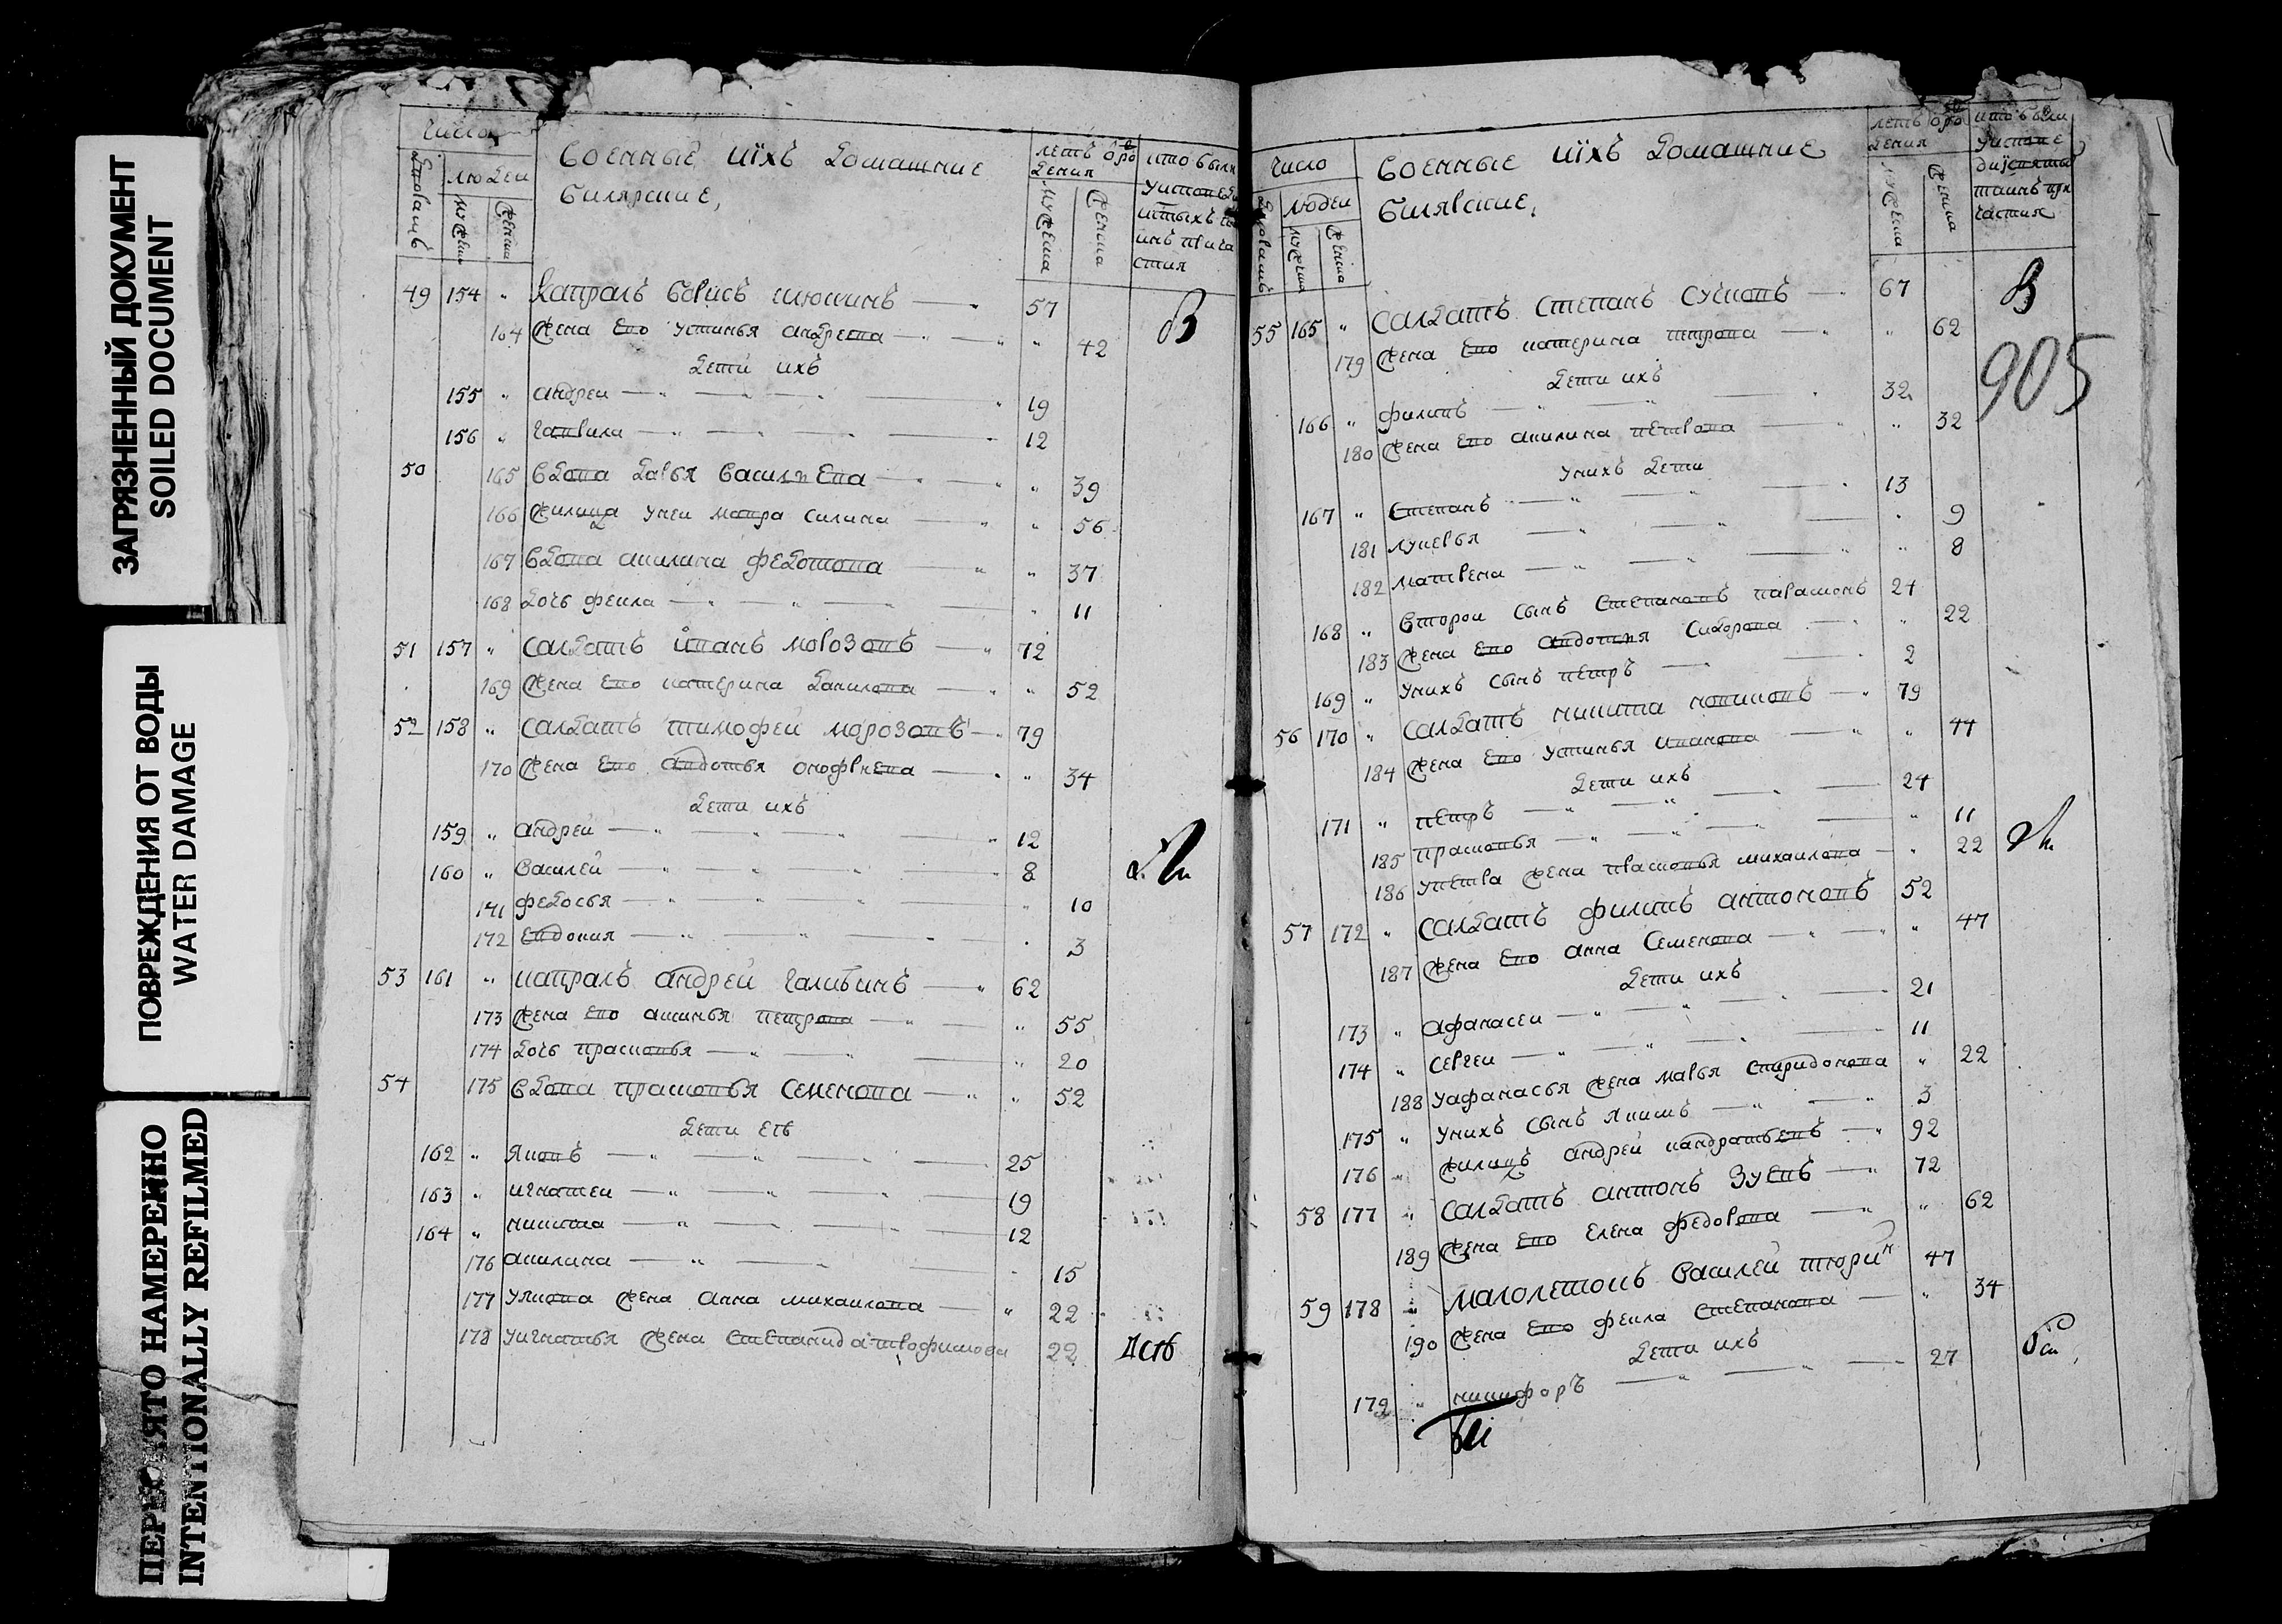 ЗАГРЯЗНЕННЫЙ ДОКУМЕНТ
SOILED DOCUMENT
ПОВРЕЖДЕНИЯ ОТ ВОДЫ
WATER DAMAGE
ПЕРЕСНЯТО НАМЕРЕННО
INTENTIONALLY REFILMED
число
дворовъ
людеи
мужеска
женска
военные иїхъ домашние
билярские,
летъ ѿ рождения
мужеска
женска
кто былъ
49 154 " капралъ борисъ илюшинъ — " 57
164 жена ево устинья андреева — " — " " 42
дети ихъ
155 " андреи — " — " — " — " 19
156 " гаврила — " — " — " — " 12
50 165 вдова дарья василиева — " — " " 39
166 жилица унеи мавра силина — " " 56
167 вдова акилина федотова — " " 37
168 дочь фекла — " — " — " — " 11
51 157 " салдатъ иванъ морозовъ — " 72
169 жена ево катерина данилова — " " 52
52 158 " салдатъ тимофеи морозовъ — " 79
170 жена ево авдотья онофриева — " " 34
дети ихъ
159 " андреи — " — " — " — " 12
160 " василеи — " — " — " — " 8
141 федосья — " — " — " — " 10
172 евдокия — " — " — " — " 3
53 161 " капралъ андреи галибинъ — " 62
173 жена ево аксинья петрова — " — " 55
174 дочь прасковья — " — " — " 20
54 175 вдова прасковья семенова — " " 52
дети еѣ
162 " яковъ — " — " — " — 25
163 " игнатеи — " — " — " — 19
164 " никита — " — " — " — 12
176 акилина — " — " — " 15
177 уякова жена анна михаилова — " 22
178 уигнатья жена степанида трофимова 22
число
дворовъ
людеи
мужеска
женска
военные иїхъ домашние
билярские,
летъ ѿ рождения
мужеска
женска
905
55 165 " салдатъ степанъ сусковъ — " 67
179 жена ево катерина петрова — " " 62
дети ихъ
166 " филипъ — " — " — " 32
180 жена ево акилина петрова — " " 32
унихъ дети
167 " степанъ — " — " — " 13
181 лукерья — " — " — " 9
182 матрена — " — " — " 8
168 " второи сынъ степановъ харатонъ 24
183 жена ево авдотия сидорова — " " 22
169 " унихъ сынъ петръ — " — " 2
56 170 " салдатъ никита новиковъ — " 79
184 жена ево устинья иванова — " " 44
дети ихъ
171 " петръ — " — " — " — 24
185 прасковья — " — " — " — " 11
186 упетра жена прасковья михаилова — " 22
57 172 " салдатъ филипъ антоновъ 52
187 жена ево анна семенова — " — " " 47
дети ихъ
173 " афанасеи — " — " — " — " 21
174 " сергеи — " — " — " — 11
188 уафанасья жена марья спиридонова " 22
175 " унихъ сынъ якимъ — " — " 3
176 " жилицъ андреи кандратьевъ — " 92
58 177 " салдатъ антонъ зуевъ — " 72
189 жена ево елена федорова — " " 62
59 178 " малолетокъ василеи тюринъ 47
190 жена ево фекла степанова — " 34
дети ихъ
179 " никифоръ — " — " — 27